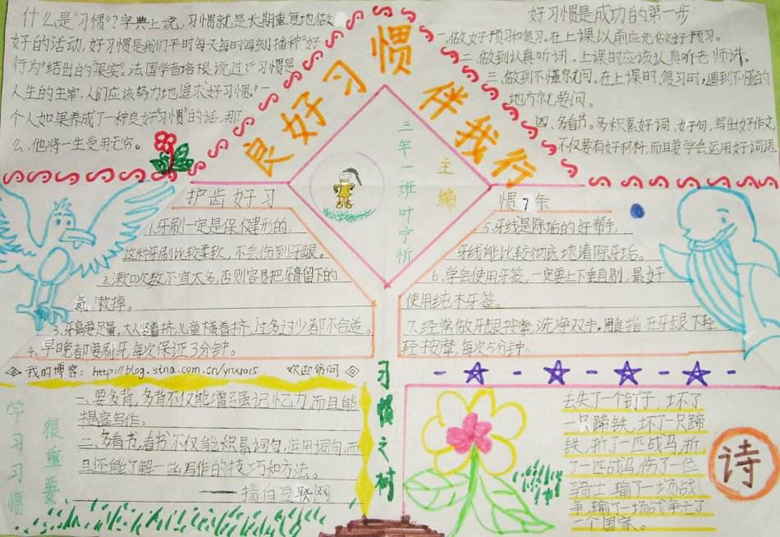 什么是“习惯”?字典上说,习惯就是长期重复地做
好的活动,好习惯是我们平时每天每时每刻播种“好
行为”结出的果实。法国学者培根说过:“习惯是
人生的主宰,人们应该努力地追求好习惯。”一
个人如果养成了一种良好“习惯”的话,那
么,他将一生受用无穷。
良好习惯伴我行
好习惯是成功的第一步
一.做好预习和复习。在上课以前应先做好预习。
二.做到认真听讲。上课时应该认真听老师讲。
三.做到不懂就问。在上课时、复习时,遇到不懂的
地方就要问。
四、多看书。多积累好词、好句,写出好作文,
不仅要有好材料,而且要学会运用好词语
主编
三年一班叶宁忻
护齿好习
惯7条
1.牙刷一定是保健形的
这种牙刷比较柔软,不会伤到牙龈。
2.漱口次数不宜太多,否则容易把牙膏留下的
氟漱掉。
3.牙膏要尽量,大人竖着挤,儿童横着挤,过多过少都不合适。
4.早晚都要刷牙,每次保证3分钟。
5.牙线是除垢的好帮手,
牙线能比较彻底地清除牙垢。
6.学会使用牙签,一定要上下垂直剔,最好
使用纯木牙签。
7.经常做牙龈按摩,洗净双手,用食指在牙龈下轻
轻按摩,每次5分钟。
我的博客:http://blog.sina.com.cn/ynx1015 欢迎访问
学习习惯
很重要
一、要多背,多背不仅能增强记忆力,而且能
提高写作。
二、多看书,看书不仅能积累词句,运用词句,而
且还能了解一些写作的技巧和方法。
——摘自互联网
习惯之树
去失了一个钉子,坏了
一只蹄铁,坏了一只蹄
铁,折了一匹战马,折
了一匹战马,伤了一位
骑士,输了一场战
争,输了一场战争亡了
一个国家。
诗